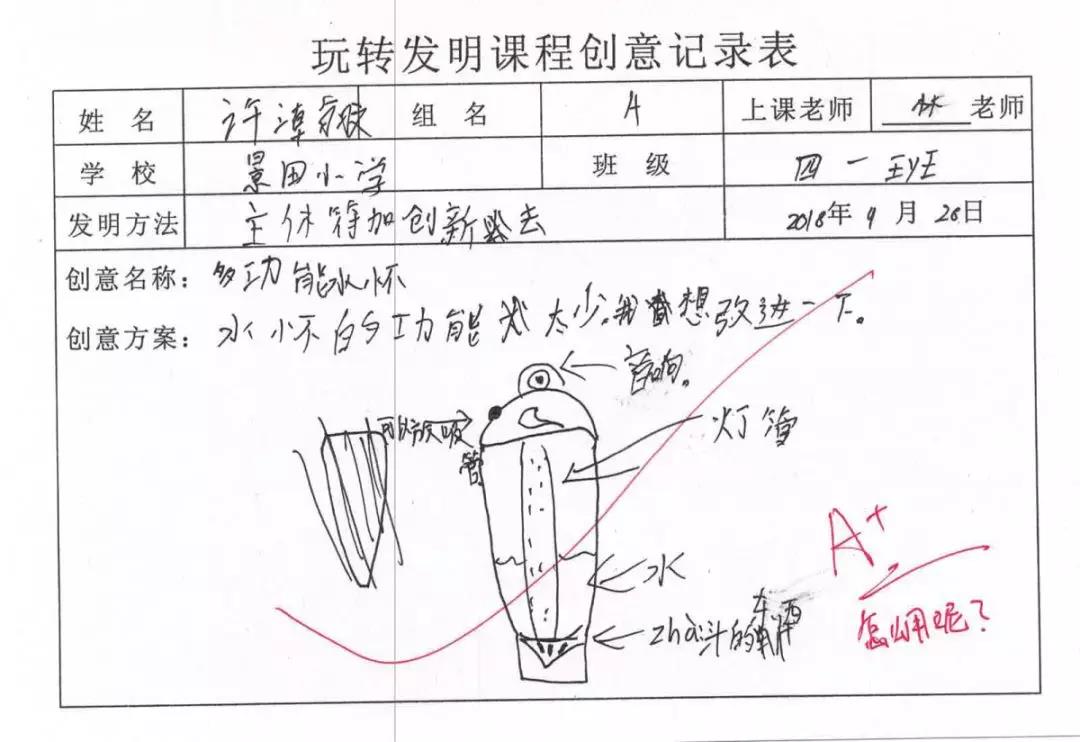 玩转发明课程创意记录表
姓 名 许 组 名 A 上课老师 林 老师
学 校 景田小学 班 级 四 一 王y王
发明方法 主休符加创新 去 2018年9月28日
创意名称：多功能水怀
创意方案：水怀的功能太少。我想改进一下。
音响。
可以放吸管
灯管
水
zhà汁的东西
A+
怎么用呢？